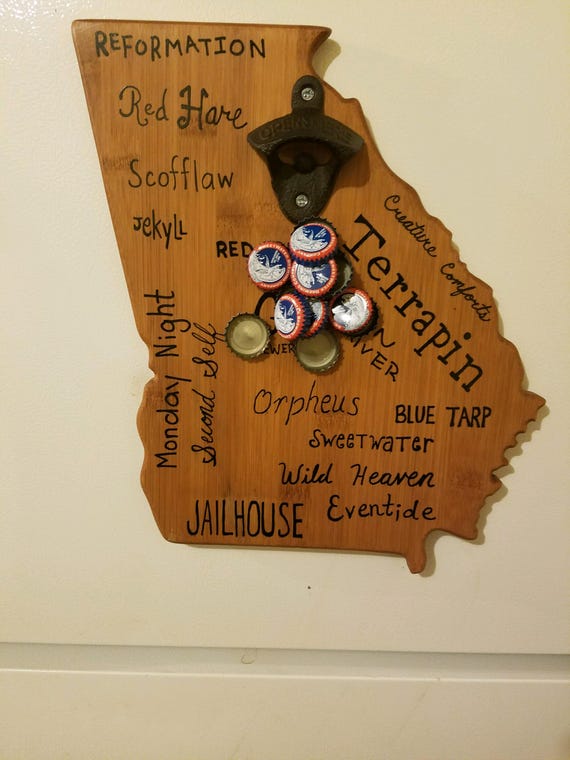 REFORMATION
Red Hare
OPEN HERE
Scofflaw
Jekyll
RED
Creature Comforts
Terrapin
Monday Night
Second Self
Orpheus
BLUE TARP
SWEETWATER
Wild Heaven
Eventide
JAILHOUSE